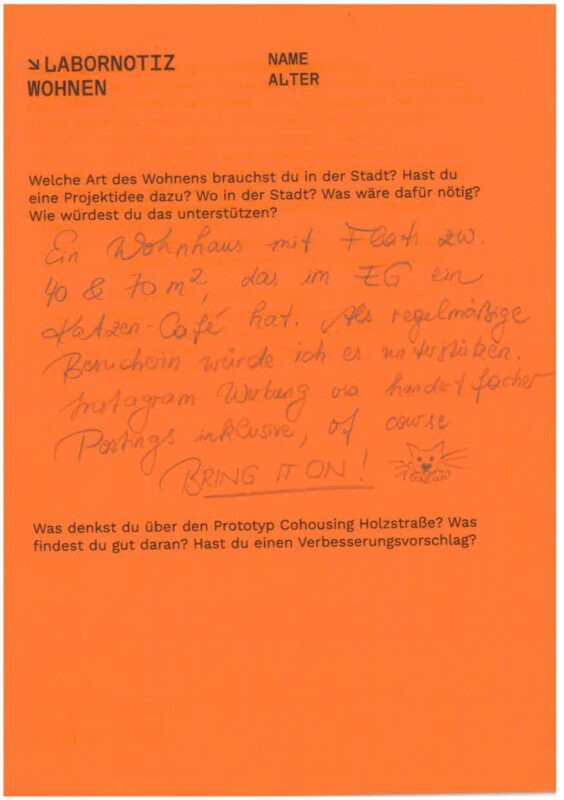 ↘ LABORNOTIZ
WOHNEN
NAME
ALTER
Welche Art des Wohnens brauchst du in der Stadt? Hast du
eine Projektidee dazu? Wo in der Stadt? Was wäre dafür nötig?
Wie würdest du das unterstützen?
Ein Wohnhaus mit Flats zw.
40 & 70 m², das im EG ein
Katzen-Café hat. Als regelmäßige
Besucherin würde ich es unterstützen.
Instagram Werbung via hundertfacher
Postings inklusive, of course
BRING IT ON!
Was denkst du über den Prototyp Cohousing Holzstraße? Was
findest du gut daran? Hast du einen Verbesserungsvorschlag?